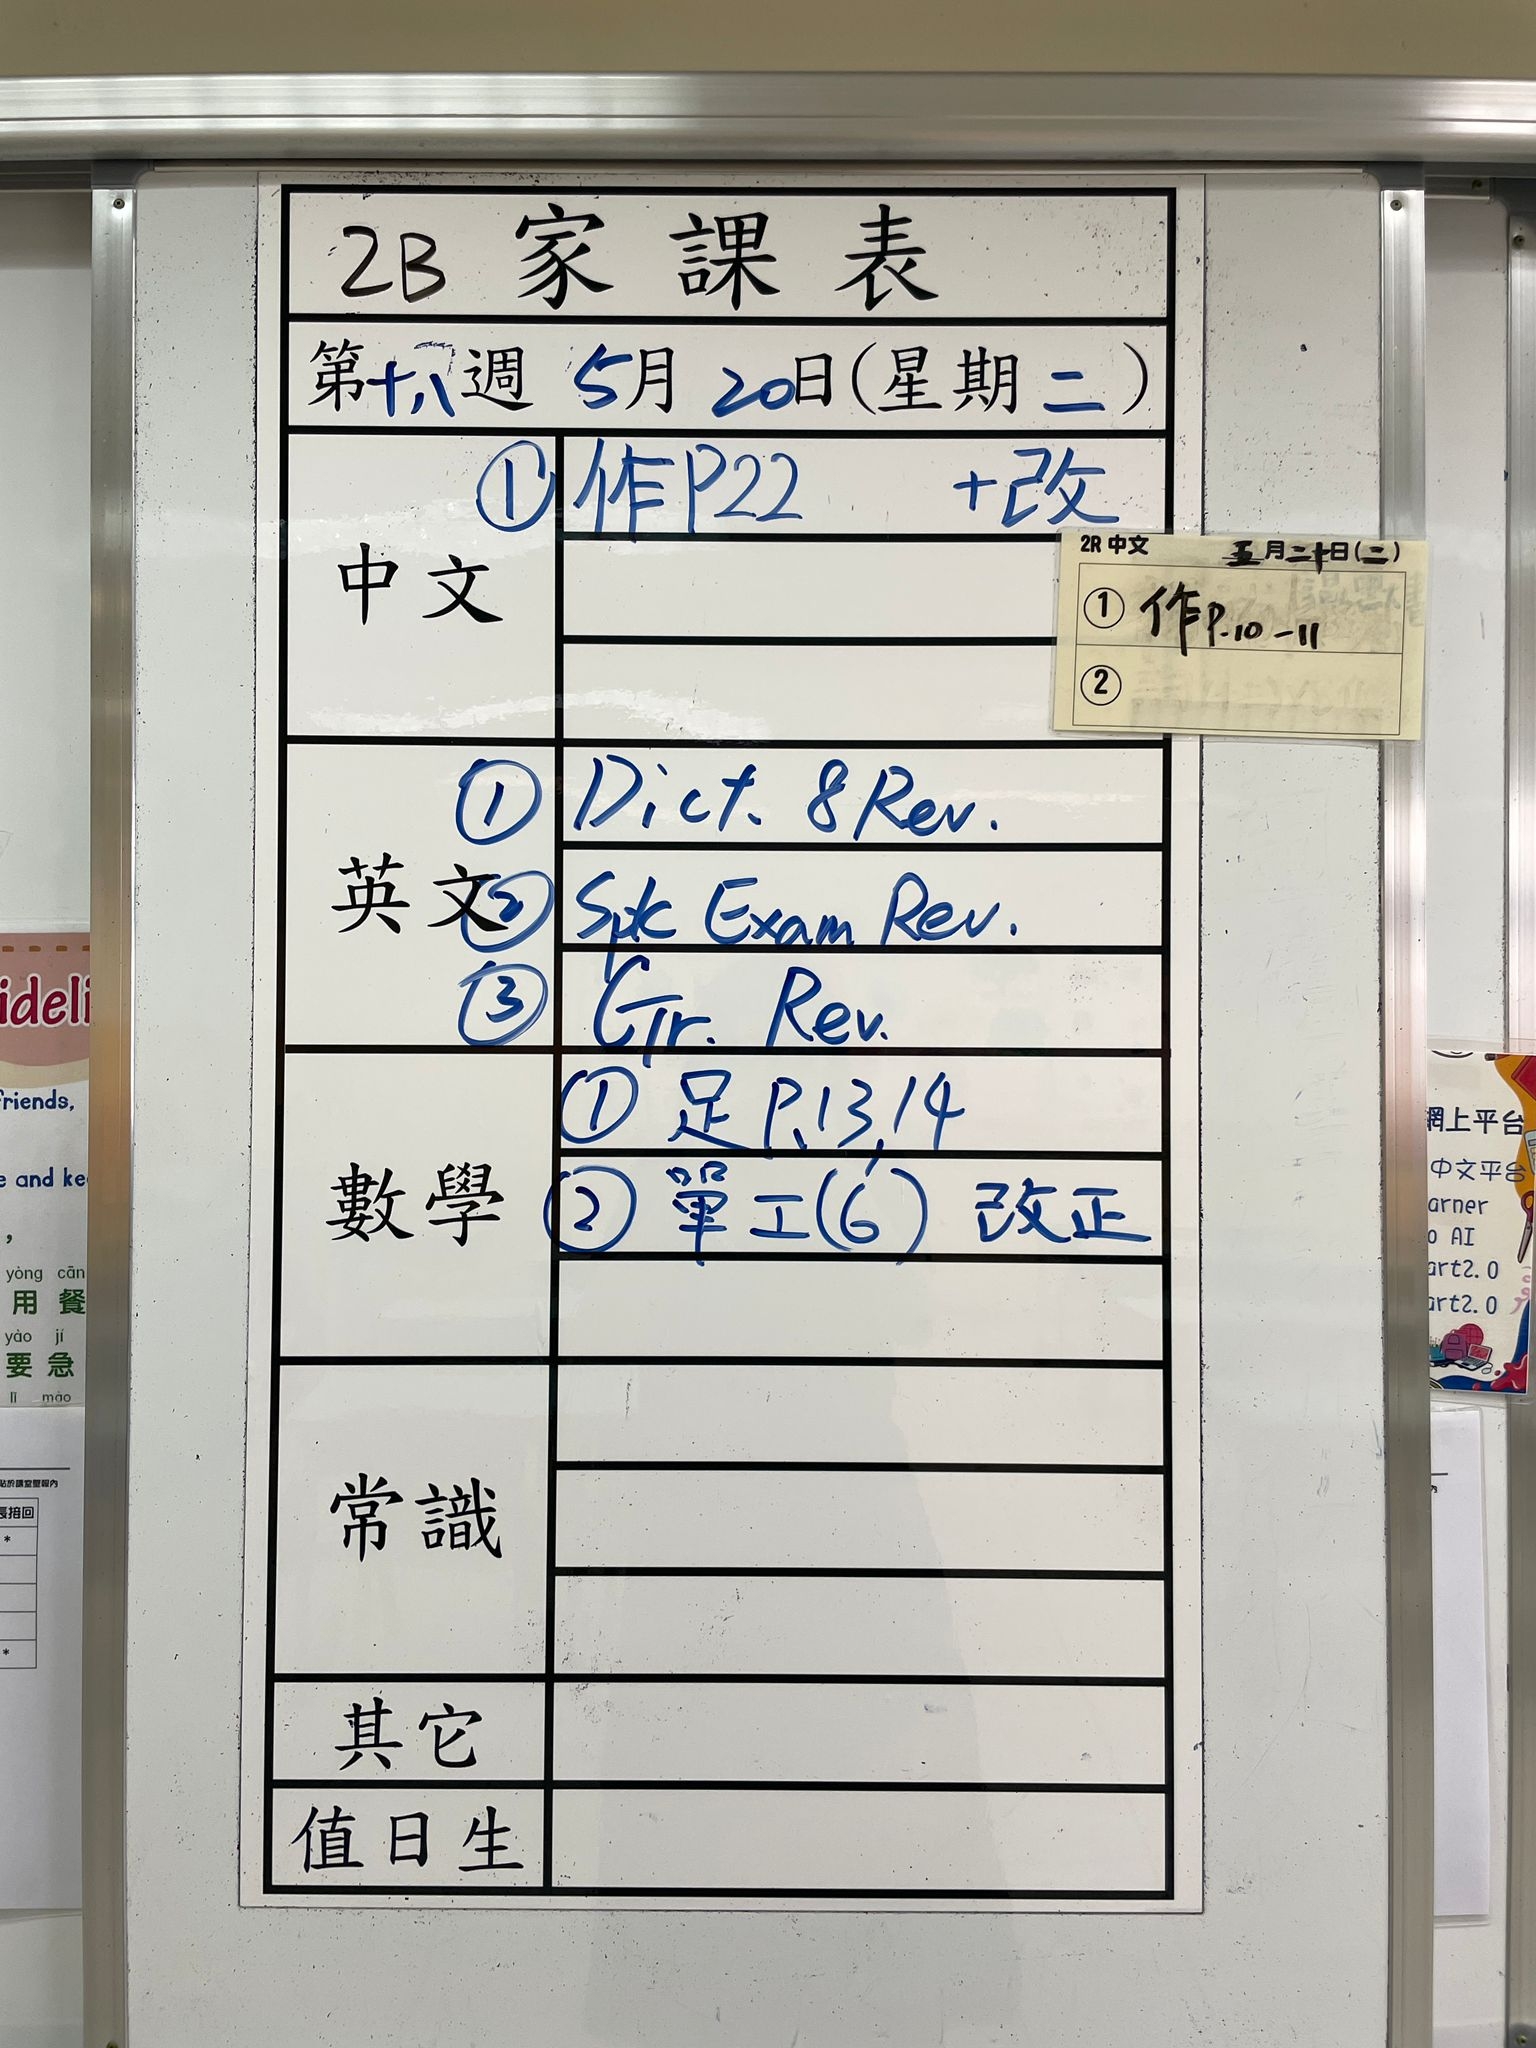 2B 家課表
第十八週 5月20日(星期二)
中文
① 作P22 +改
2R 中文 五月二十日(二)
① 作P.10-11
②
英文
① Dict. 8 Rev.
② Spk Exam Rev.
③ Gr. Rev.
數學
① 足 P.13,14
② 單工(6) 改正
常識
其它
值日生
ideli
friends,
e and ke
,
yòng cān
用餐
yào jí
要急
lǐ mào
貼於課室壁報內
長揞回
*
*
網上平台
中文平台
arner
o AI
art2.0
art2.0